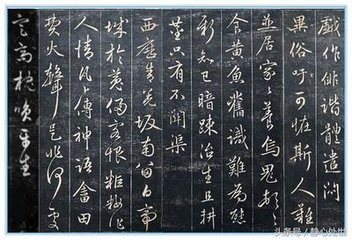 戲作俳諧體遣悶
異俗吁可怪斯人難
並居家家養烏鬼頓頓
食黃魚舊識難為態
新知已暗疎治生且耕
鑿只有不關渠
西歷青羌坂南留白帝
城於菟侵客恨粔籹作
人情瓦卜傳神語畬田
費火聲是非何處
定高枕笑浮生
头条号 / 静心处世